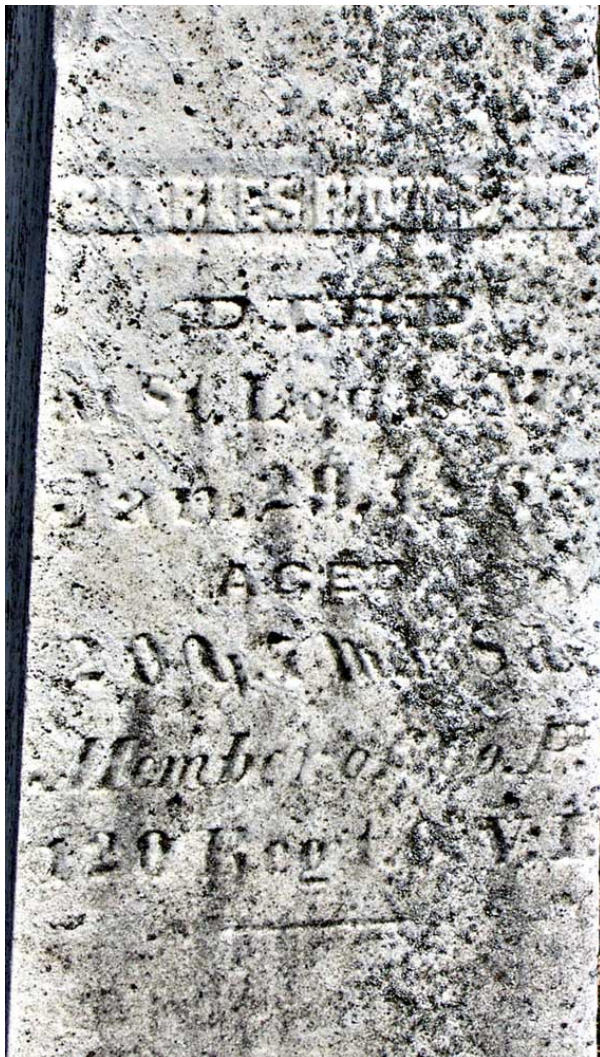 CHARLES
DIED
At St. Louis, Mo.
Jan. 29, 1863
AGED
20 y. 7 m. 8 d.
Member of Co.
120 Reg't. O. V. I.